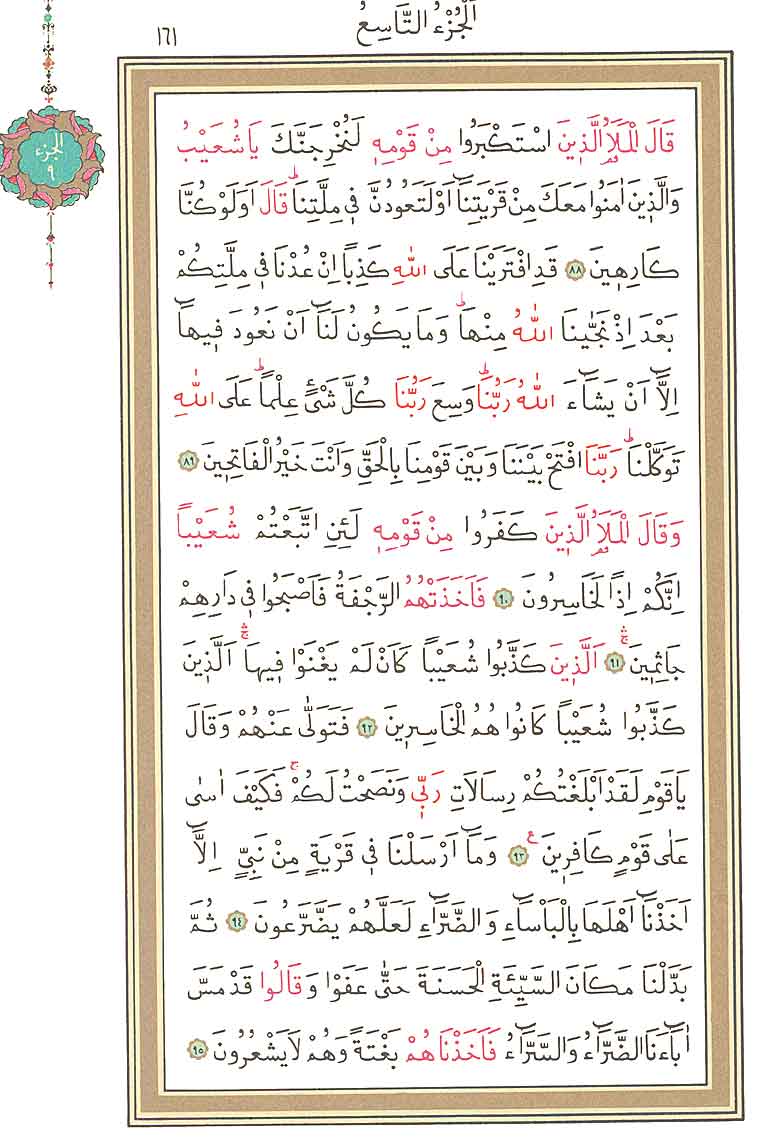 اَلْجُزْءُ التَّاسِعُ
١٦١
الجزء
٩
قَالَ الْمَلَاُ الَّذٖينَ اسْتَكْبَرُوا مِنْ قَوْمِهٖ لَنُخْرِجَنَّكَ يَاشُعَيْبُ
وَالَّذٖينَ اٰمَنُوا مَعَكَ مِنْ قَرْيَتِنَٓا اَوْ لَتَعُودُنَّ فٖى مِلَّتِنَاؕ قَالَ اَوَلَوْ كُنَّا
كَارِهٖينَ ﴿٨٨﴾ قَدِ افْتَرَيْنَا عَلَى اللّٰهِ كَذِباً اِنْ عُدْنَا فٖى مِلَّتِكُمْ
بَعْدَ اِذْ نَجّٰينَا اللّٰهُ مِنْهَاؕ وَمَا يَكُونُ لَنَٓا اَنْ نَعُودَ فٖيهَٓا
اِلَّٓا اَنْ يَشَٓاءَ اللّٰهُ رَبُّنَاؕ وَسِعَ رَبُّنَا كُلَّ شَىْءٍ عِلْماًؕ عَلَى اللّٰهِ
تَوَكَّلْنَاؕ رَبَّنَا افْتَحْ بَيْنَنَا وَبَيْنَ قَوْمِنَا بِالْحَقِّ وَاَنْتَ خَيْرُ الْفَاتِحٖينَ ﴿٨٩﴾
وَقَالَ الْمَلَاُ الَّذٖينَ كَفَرُوا مِنْ قَوْمِهٖ لَئِنِ اتَّبَعْتُمْ شُعَيْباً
اِنَّكُمْ اِذاً لَخَاسِرُونَ ﴿٩٠﴾ فَاَخَذَتْهُمُ الرَّجْفَةُ فَاَصْبَحُوا فٖى دَارِهِمْ
جَاثِمٖينَ ﴿٩١﴾ۚۛ اَلَّذٖينَ كَذَّبُوا شُعَيْباً كَاَنْ لَمْ يَغْنَوْا فٖيهَاۚۛ اَلَّذٖينَ
كَذَّبُوا شُعَيْباً كَانُوا هُمُ الْخَاسِرٖينَ ﴿٩٢﴾ فَتَوَلّٰى عَنْهُمْ وَقَالَ
يَاقَوْمِ لَقَدْ اَبْلَغْتُكُمْ رِسَالَاتِ رَبّٖى وَنَصَحْتُ لَكُمْۚ فَكَيْفَ اٰسٰى
عَلٰى قَوْمٍ كَافِرٖينَ ﴿٩٣﴾ ع وَمَٓا اَرْسَلْنَا فٖى قَرْيَةٍ مِنْ نَبِىٍّ اِلَّٓا
اَخَذْنَٓا اَهْلَهَا بِالْبَاْسَٓاءِ وَالضَّرَّٓاءِ لَعَلَّهُمْ يَضَّرَّعُونَ ﴿٩٤﴾ ثُمَّ
بَدَّلْنَا مَكَانَ السَّيِّئَةِ الْحَسَنَةَ حَتّٰى عَفَوْا وَقَالُوا قَدْ مَسَّ
اٰبَٓاءَنَا الضَّرَّٓاءُ وَالسَّرَّٓاءُ فَاَخَذْنَاهُمْ بَغْتَةً وَهُمْ لَا يَشْعُرُونَ ﴿٩٥﴾